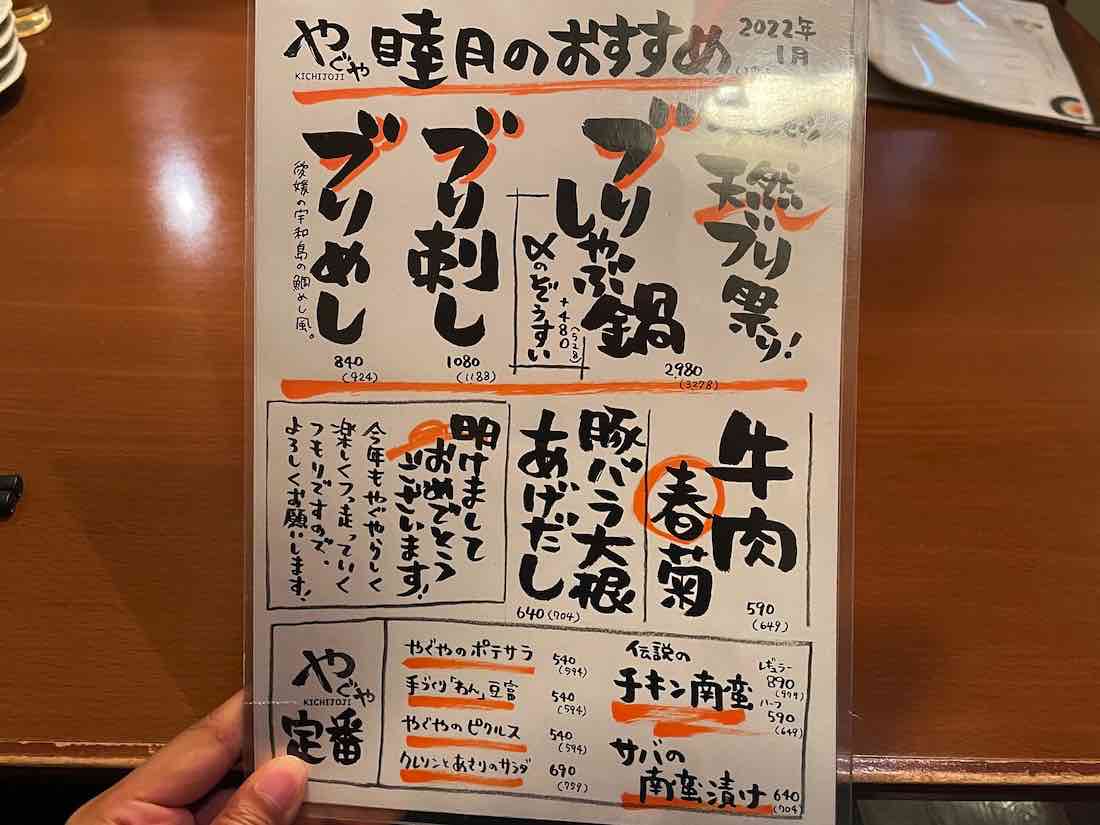 やぐや
KICHIJOJI
睦月のおすすめ
2022年
1月
天然
ブリ祭り!
ブリ
しゃぶ鍋
2,980
(3278)
〆のぞうすい
+480
(528)
ブリ刺し
1080
(1188)
ブリめし
愛媛の宇和島の鯛めし風。
840
(924)
牛肉
春菊
590
(649)
豚バラ大根
あげだし
640(704)
明けまして
おめでとう
ございます!
今年もやぐやらしく
楽しくつっ走っていく
つもりですので、
よろしくお願いします!
やぐや
KICHIJOJI
定番
やぐやのポテサラ
540
(594)
手づくり「わん」豆富
540
(594)
やぐやのピクルス
540
(594)
クレソンとあさりのサラダ
690
(759)
伝説の
チキン南蛮
レギュラー
890
(979)
ハーフ
590
(649)
サバの
南蛮漬け
640
(704)